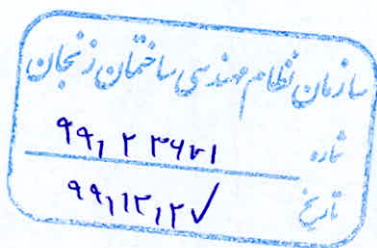 سازمان نظام مهندسی ساختمان زنجان
شماره ۹۹,۲۳۶۷۱
تاریخ ۹۹,۱۲,۲۷